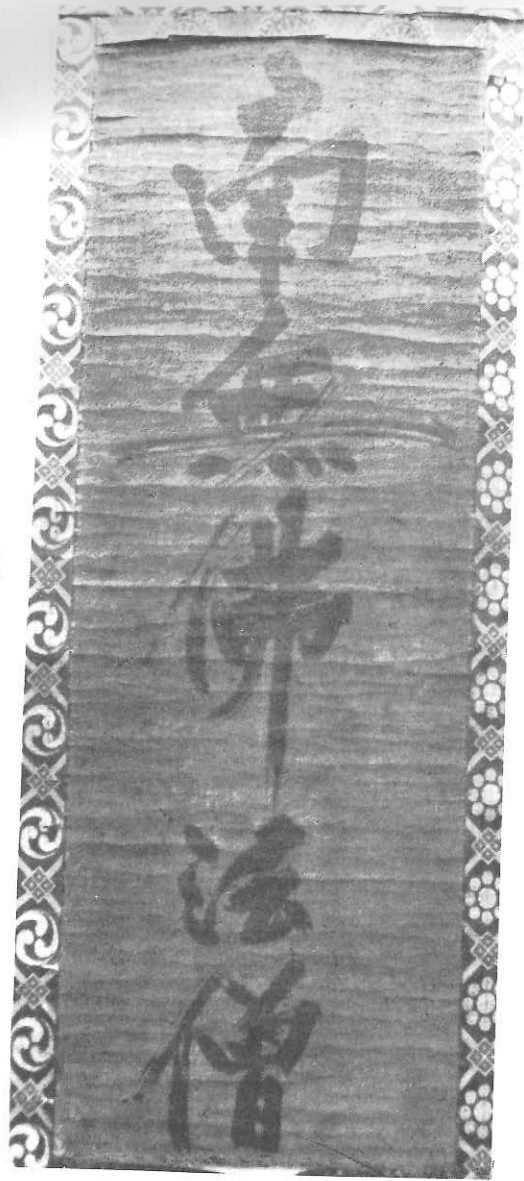 南無佛法僧